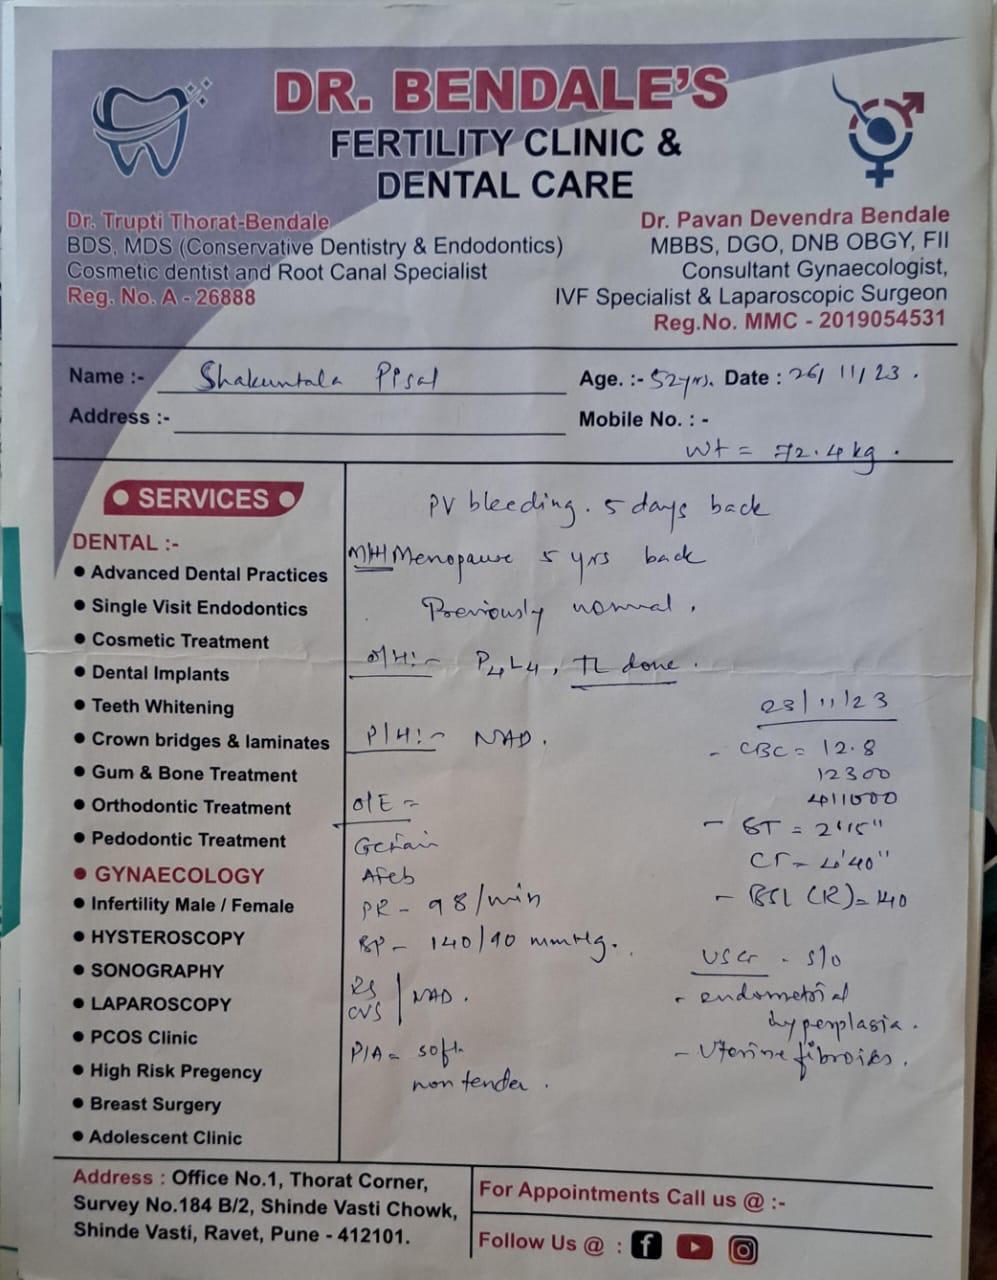 DR. BENDALE'S
FERTILITY CLINIC &
DENTAL CARE
Dr. Trupti Thorat-Bendale
BDS, MDS (Conservative Dentistry & Endodontics)
Cosmetic dentist and Root Canal Specialist
Reg. No. A - 26888
Dr. Pavan Devendra Bendale
MBBS, DGO, DNB OBGY, FII
Consultant Gynaecologist,
IVF Specialist & Laparoscopic Surgeon
Reg.No. MMC - 2019054531
Name :- Shakuntala Pisal
Age. :- 52yrs. Date : 26/11/23.
Address :-
Mobile No. : -
Wt = 72.4kg.
SERVICES
DENTAL :-
• Advanced Dental Practices
• Single Visit Endodontics
• Cosmetic Treatment
• Dental Implants
• Teeth Whitening
• Crown bridges & laminates
• Gum & Bone Treatment
• Orthodontic Treatment
• Pedodontic Treatment
• GYNAECOLOGY
• Infertility Male / Female
• HYSTEROSCOPY
• SONOGRAPHY
• LAPAROSCOPY
• PCOS Clinic
• High Risk Pregency
• Breast Surgery
• Adolescent Clinic
PV bleeding. 5 days back
M/H Menopause 5 yrs back
Previously normal.
O/H:- P4L4, TL done.
P/H:- NAD.
O/E =
Afeb
PR - 98/min
BP - 140/90 mmHg.
RS
CVS NAD.
P/A = soft
non tender.
23/11/23
- CBC = 12.8
12300
411000
- BT = 2'15"
CT = 4'40"
- BSL (R) = 140
USG - S/o
- endometrial
hyperplasia.
- Uterine fibroids.
Address : Office No.1, Thorat Corner,
Survey No.184 B/2, Shinde Vasti Chowk,
Shinde Vasti, Ravet, Pune - 412101.
For Appointments Call us @ :-
Follow Us @ :